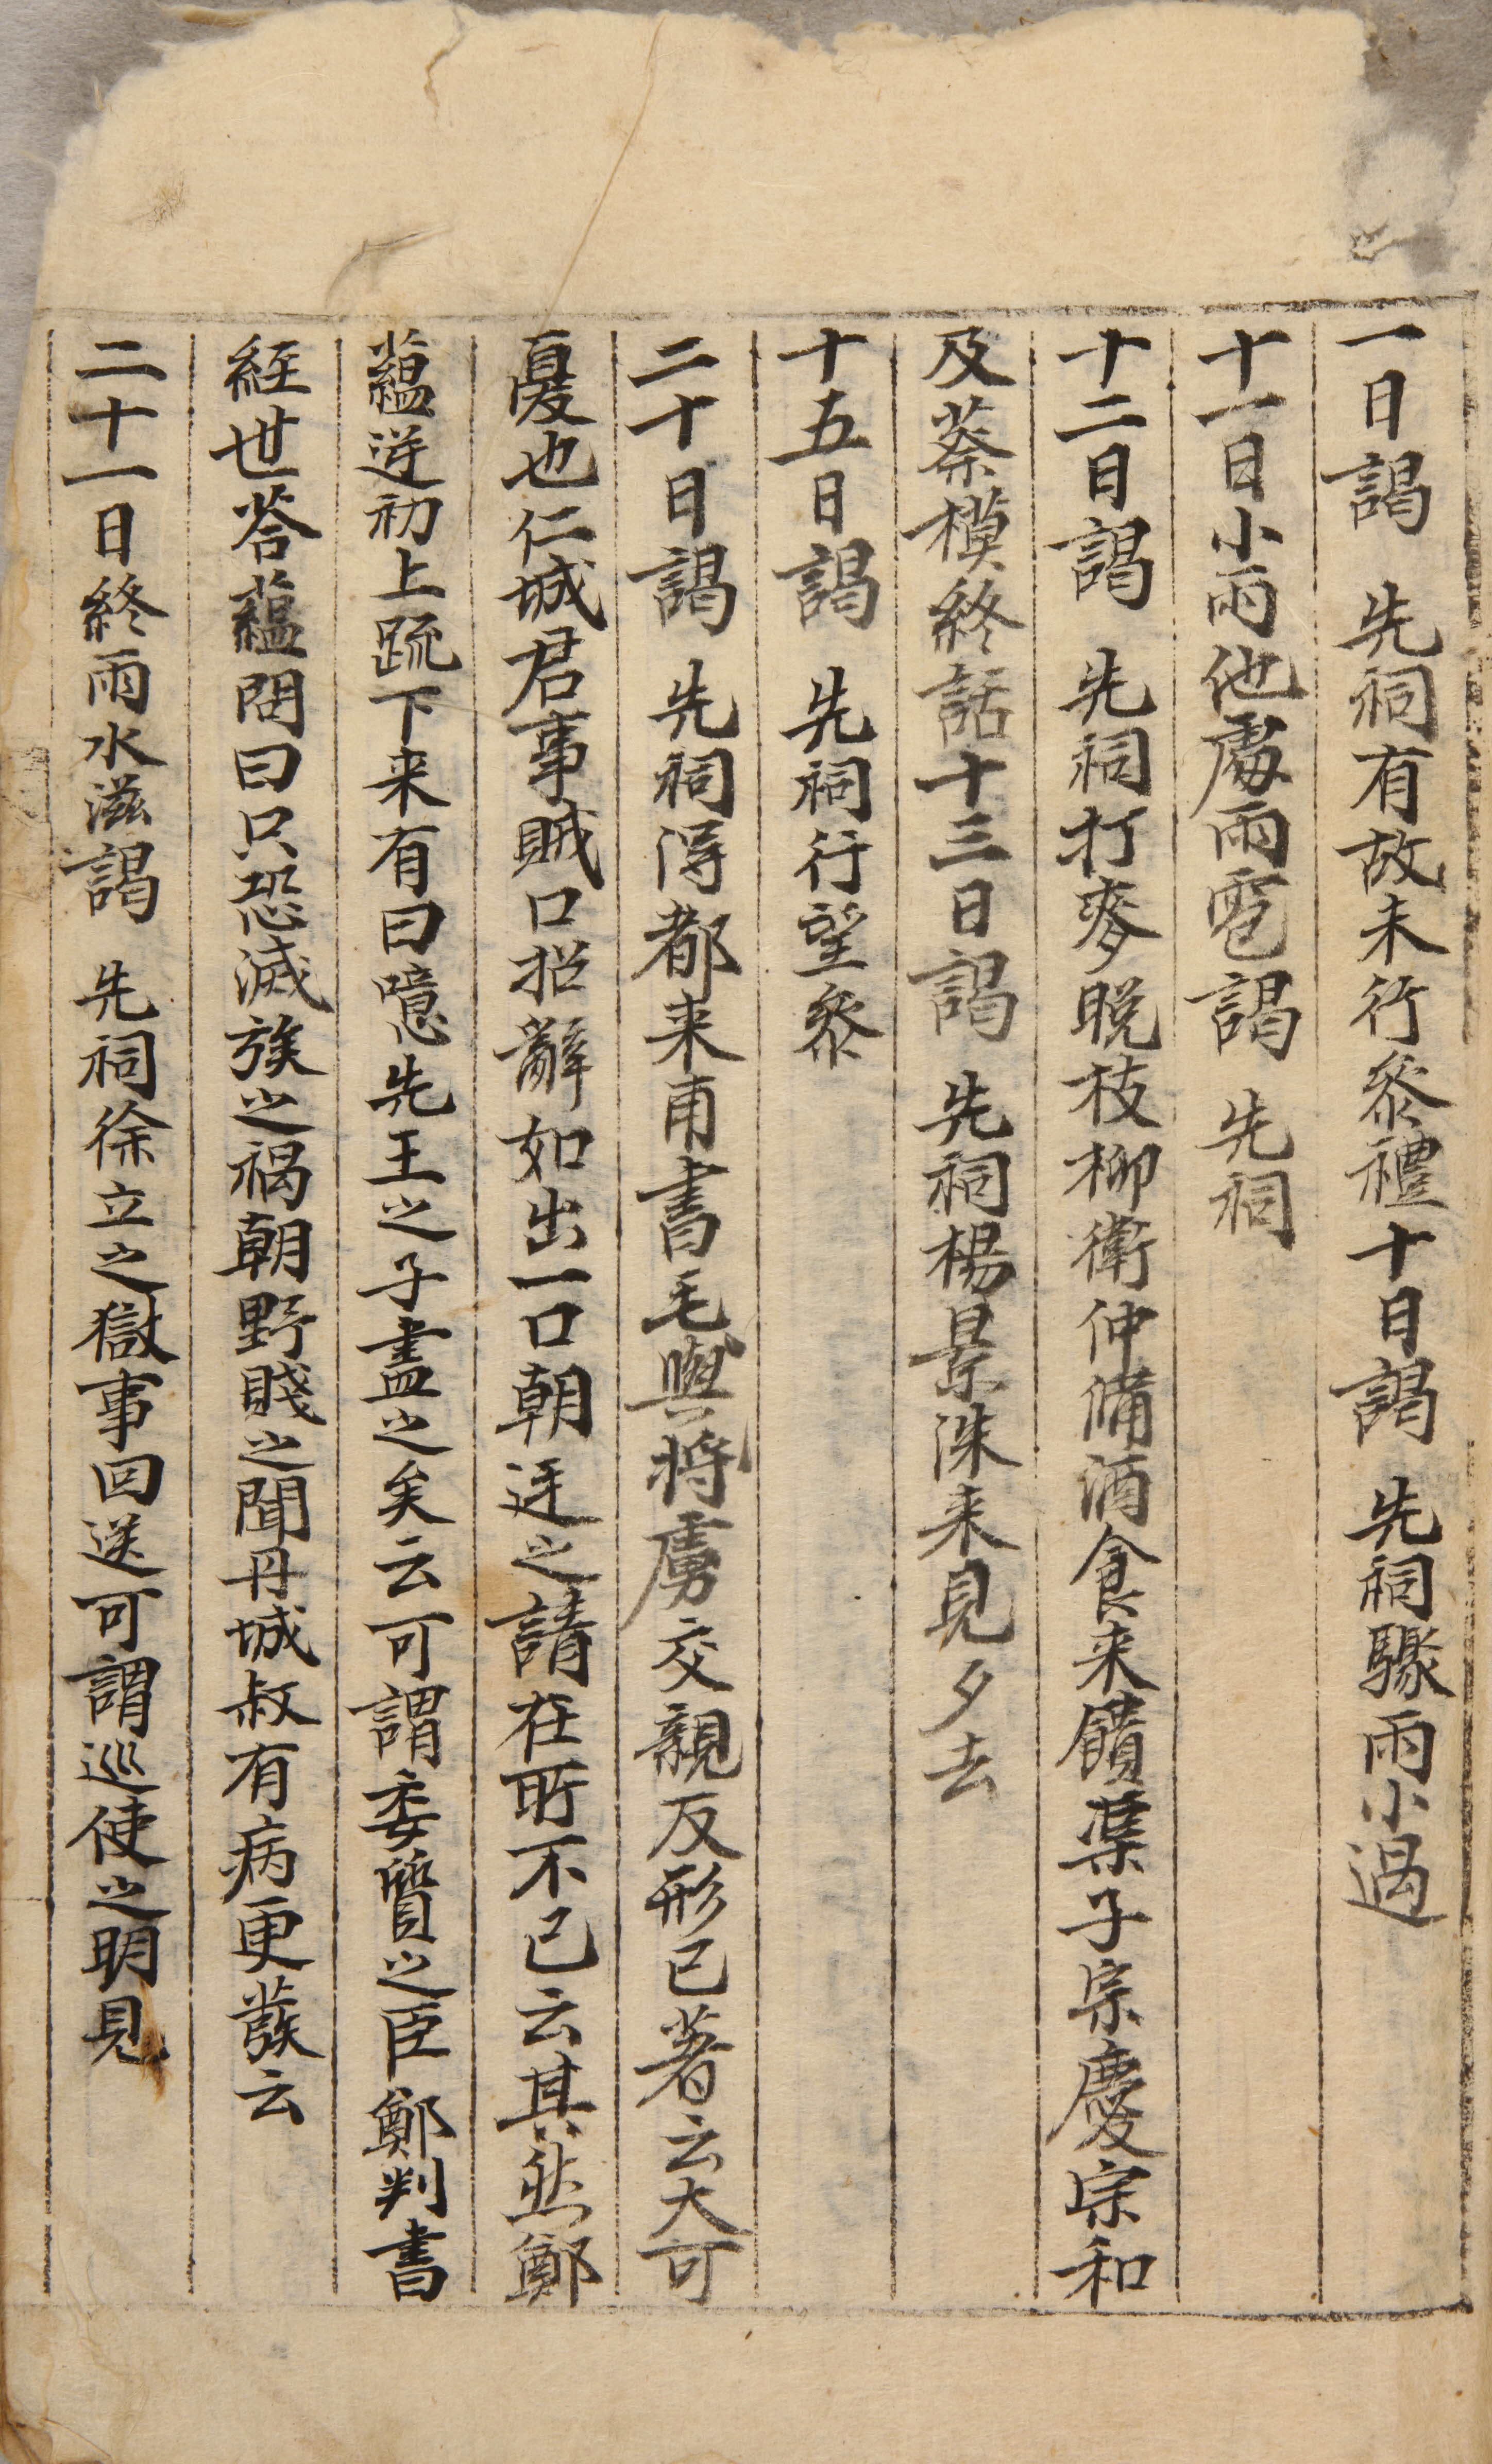 一日謁　先祠有故未行叅禮十日謁　先祠驟雨小過
十一日小雨他處雨雹謁　先祠
十二日謁　先祠打麥晩枝柳衛仲備酒食来饋葉子宗慶宗和
及蔡模終話十三日謁　先祠楊景洙来見夕去
十五日謁　先祠行望叅
二十日謁　先祠得都来甫書毛與將虜交親反形已著云大可
憂也仁城君事賊口招辭如出一口朝廷之請在所不已云其然鄭
蘊逆初上䟽下来有曰噫先王之子盡之矣云可謂委質之臣鄭判書
経世荅蘊問曰只恐滅族之禍朝野賤之聞丹城叔有病更蕟云
二十一日終雨水滋謁　先祠徐立之獄事回送可謂巡使之明見